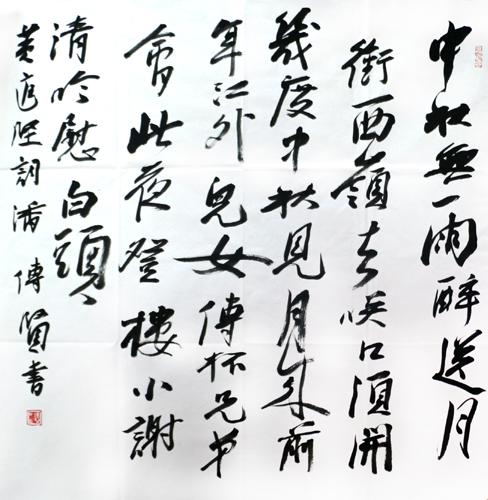 中秋無雨醉送月
銜西嶺去咲口須開
幾度中秋見月來前
年江外兒女傳杯兄弟
會此夜登樓小謝
清吟慰白頭
黃庭堅詞潘傳賢書